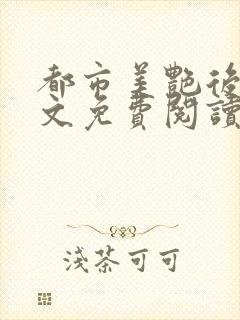 都市美艷後
文免費閱讀
淺茶可可